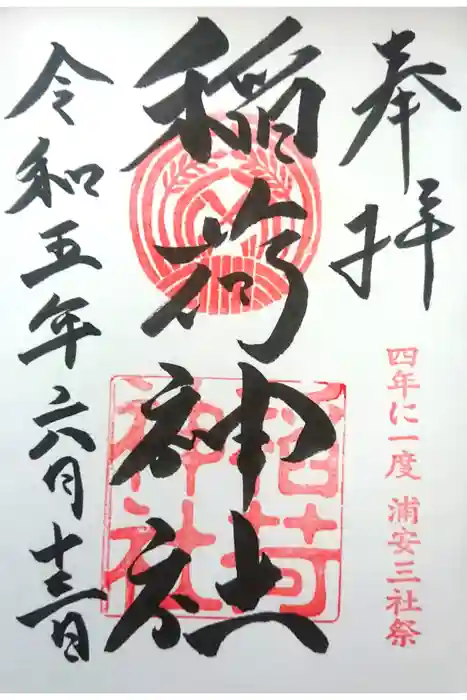 奉拝
四年に一度 浦安三社祭
稲荷神社
稲荷
神社
令和五年六月十三日